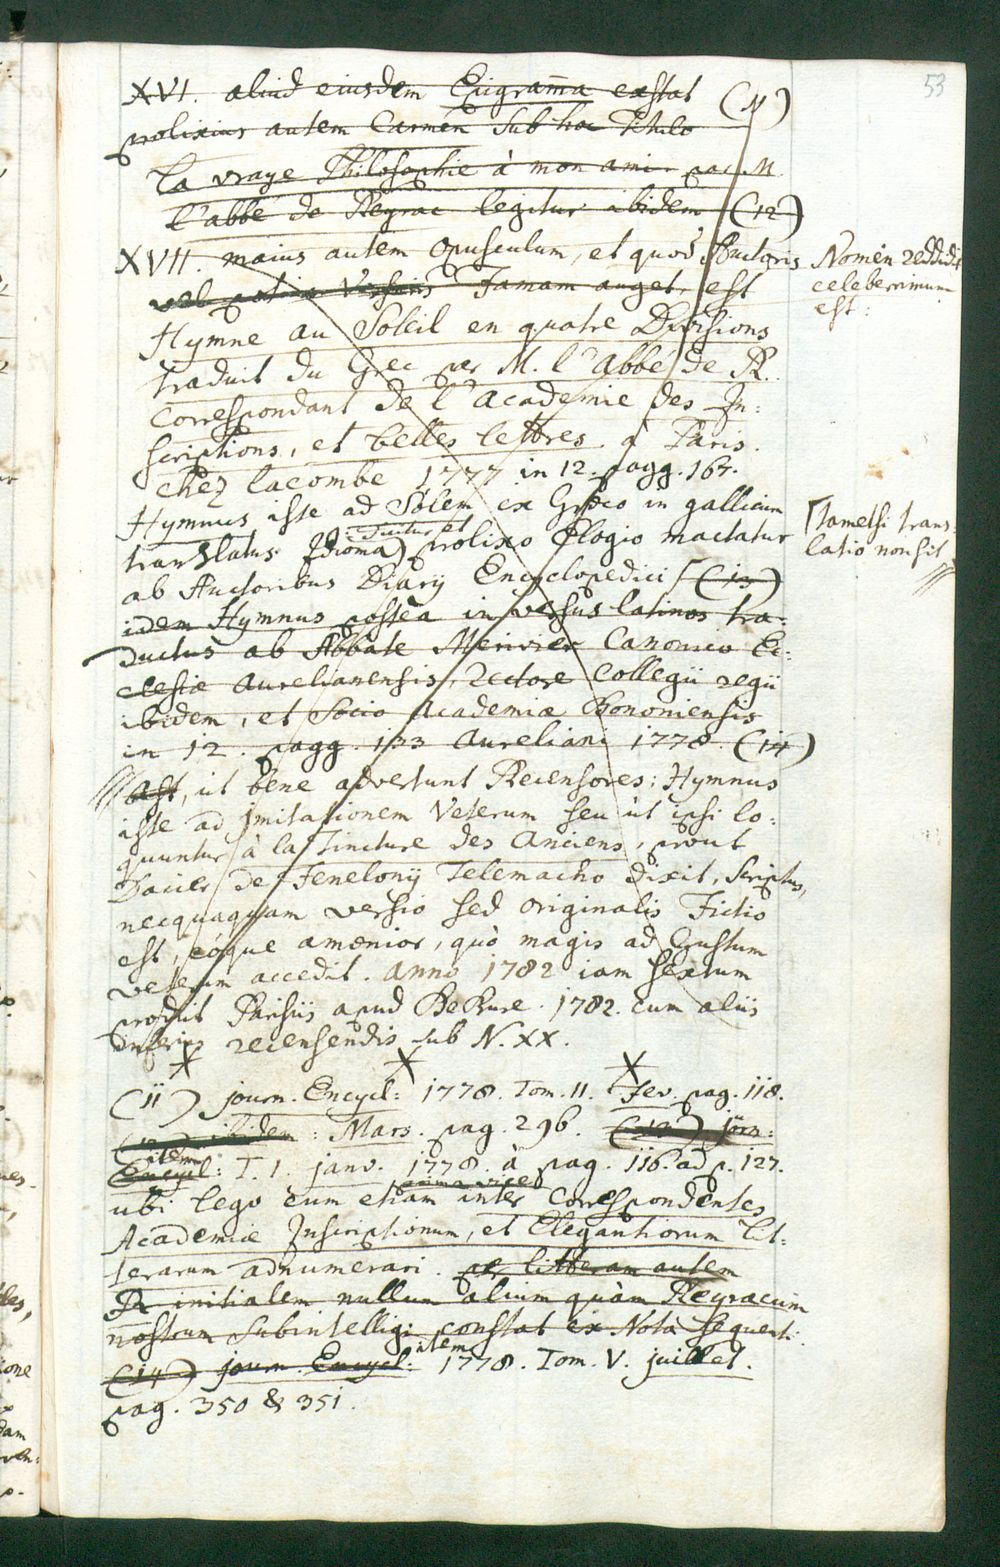 53
XVI. aliud eiusdem Epigram̄a exstat (11)
prolixius autem Carmen sub hoc Titulo
La vraye Philosophie à mon ami par M.
l'abbé de Reyrac legitur ibidem (12)
XVII. maius autem Opusculum, et quod Auctoris
vel potius Versoris Famam auget, est
Nomen reddidit
celeberrimum
est:
Hymne au Soleil en quatre Divisions
traduit du Grec par M. l'Abbé de R.
Correspondant de l'Academie des In:
scriptions, et belles lettres. à Paris.
chez lacombe 1777 in 12. pagg. 167.
Hymnus iste ad Solem ex Græco in gallicum
translatus Idioma dicitur, et prolixo Elogio mactatur
ab Auctoribus Diarij Encyclopedici ⌈ (13)
⌈tametsi trans:
latio non sit
idem Hymnus postea in versus latinos tra:
ductus ab Abbate Merivier Canonico Ec:
clesiæ Aurelianensis, Rectore Collegii regii
ibidem, et Socio Academiæ Bononiensis
in 12. pagg. 133 Aureliani 1778. (14)
ast, ut bene advertunt Recensores: Hymnus
iste ad Imitationem Veterum seu ut ipsi lo:
quuntur à la Tincture des Anciens, prout
Dacier de Fenelonij Telemacho dixit, scriptus,
necquaquam versio sed originalis Fictio
est, eoque amœnior, quò magis ad Gustum
veterum accedit. Anno 1782 iam sextum
prodiit Parisiis apud DeBure. 1782. cum aliis
inferius recensendis sub N. XX.
(11) journ. Encycl: 1778. Tom. II. Fev. pag. 118.
(12) ibidem: Mars. pag. 296. (13) jörn:
item
Encycl: T. 1. janv. 1778. à pag. 116. ad p. 127.
ubi lego eum etiam inter Correspondentes
Academiæ Inscriptionum, et Elegantiorum Lit:
terarum adnumerari. per litteram autem
R initialem nullum alium quàm Reyracum
nostrum subintelligi constat ex Notâ sequenti:
(14) journ. Encycl: item 1778. Tom. V. juillet.
pag. 350 & 351.